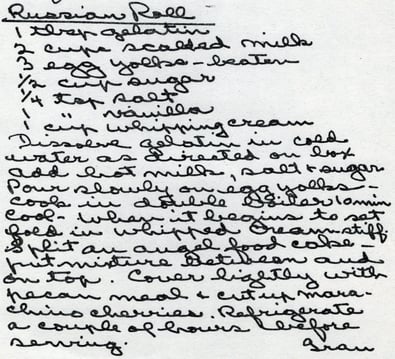 Russian Roll
1 tbsp gelatin
2 cups scalded milk
3 egg yolks - beaten
1/2 cup sugar
1/4 tsp salt
1 " vanilla
1 cup whipping cream
Dissolve gelatin in cold
water as directed on box
add hot milk, salt & sugar
Pour slowly on egg yolks -
cook in double boiler 10 min
Cool - when it begins to set
fold in whipped cream - stiff.
Split an angel food cake -
put mixture between and
on top. Cover lightly with
pecan meal & cut up mara-
chino cherries. Refrigerate
a couple of hours before
serving. Gran